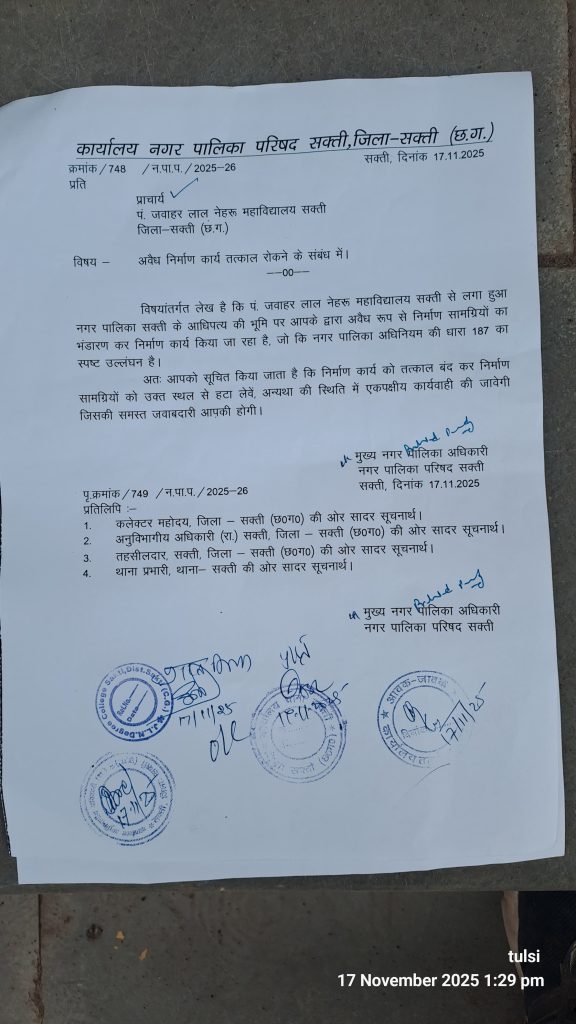 कार्यालय नगर पालिका परिषद सक्ती,जिला–सक्ती (छ.ग.)
क्रमांक/748 /न.पा.प./2025–26
सक्ती, दिनांक 17.11.2025
प्रति
प्राचार्य
पं. जवाहर लाल नेहरू महाविद्यालय सक्ती
जिला–सक्ती (छ.ग.)
विषय – अवैध निर्माण कार्य तत्काल रोकने के संबंध में।
––00––
विषयांतर्गत लेख है कि पं. जवाहर लाल नेहरू महाविद्यालय सक्ती से लगा हुआ
नगर पालिका सक्ती के आधिपत्य की भूमि पर आपके द्वारा अवैध रूप से निर्माण सामग्रियों का
भंडारण कर निर्माण कार्य किया जा रहा है, जो कि नगर पालिका अधिनियम की धारा 187 का
स्पष्ट उल्लंघन है।
अतः आपको सूचित किया जाता है कि निर्माण कार्य को तत्काल बंद कर निर्माण
सामग्रियों को उक्त स्थल से हटा लेवें, अन्यथा की स्थिति में एकपक्षीय कार्यवाही की जावेगी
जिसकी समस्त जवाबदारी आपकी होगी।
मुख्य नगर पालिका अधिकारी
नगर पालिका परिषद सक्ती
सक्ती, दिनांक 17.11.2025
पृ.क्रमांक/749 /न.पा.प./2025–26
प्रतिलिपि :–
1. कलेक्टर महोदय, जिला – सक्ती (छ0ग0) की ओर सादर सूचनार्थ।
2. अनुविभागीय अधिकारी (रा.) सक्ती, जिला – सक्ती (छ0ग0) की ओर सादर सूचनार्थ।
3. तहसीलदार, सक्ती, जिला – सक्ती (छ0ग0) की ओर सादर सूचनार्थ।
4. थाना प्रभारी, थाना– सक्ती की ओर सादर सूचनार्थ।
मुख्य नगर पालिका अधिकारी
नगर पालिका परिषद सक्ती
J.L.N.Degree College Sakti,Dist.Sakti (C.G.)
17/11/25
आवक-जावक
17/11/25
17/11/25
tulsi
17 November 2025 1:29 pm